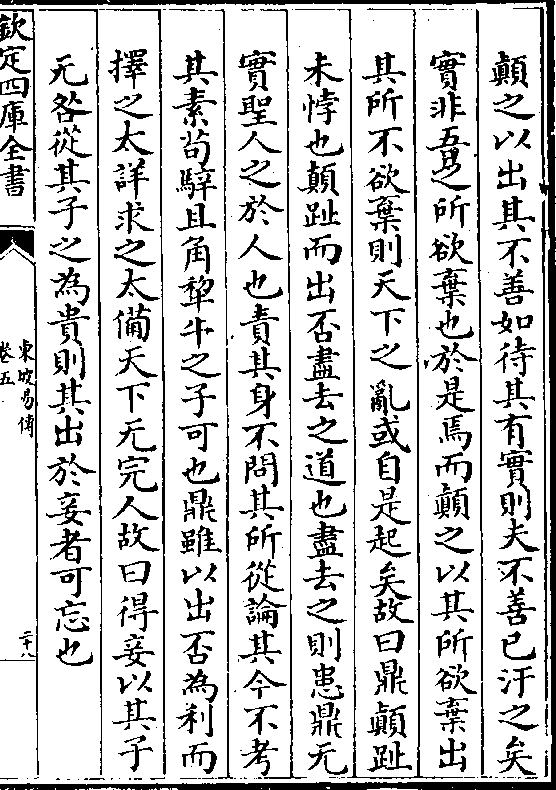 顛之以出其不善如待其有實則夫不善已汙之矣
實非吾之所欲棄也於是焉而顛之以其所欲棄出
其所不欲棄則天下之亂或自是起矣故曰鼎顛趾
未悖也顛趾而出否盡去之道也盡去之則患鼎无
實聖人之於人也責其身不問其所從論其今不考
其素苟騂且角犂牛之子可也鼎雖以出否為利而
擇之太詳求之太備天下无完人故曰得妾以其子
无咎從其子之為貴則其出於妾者可忘也
欽定四庫全書
東坡易傳
卷五
二十八